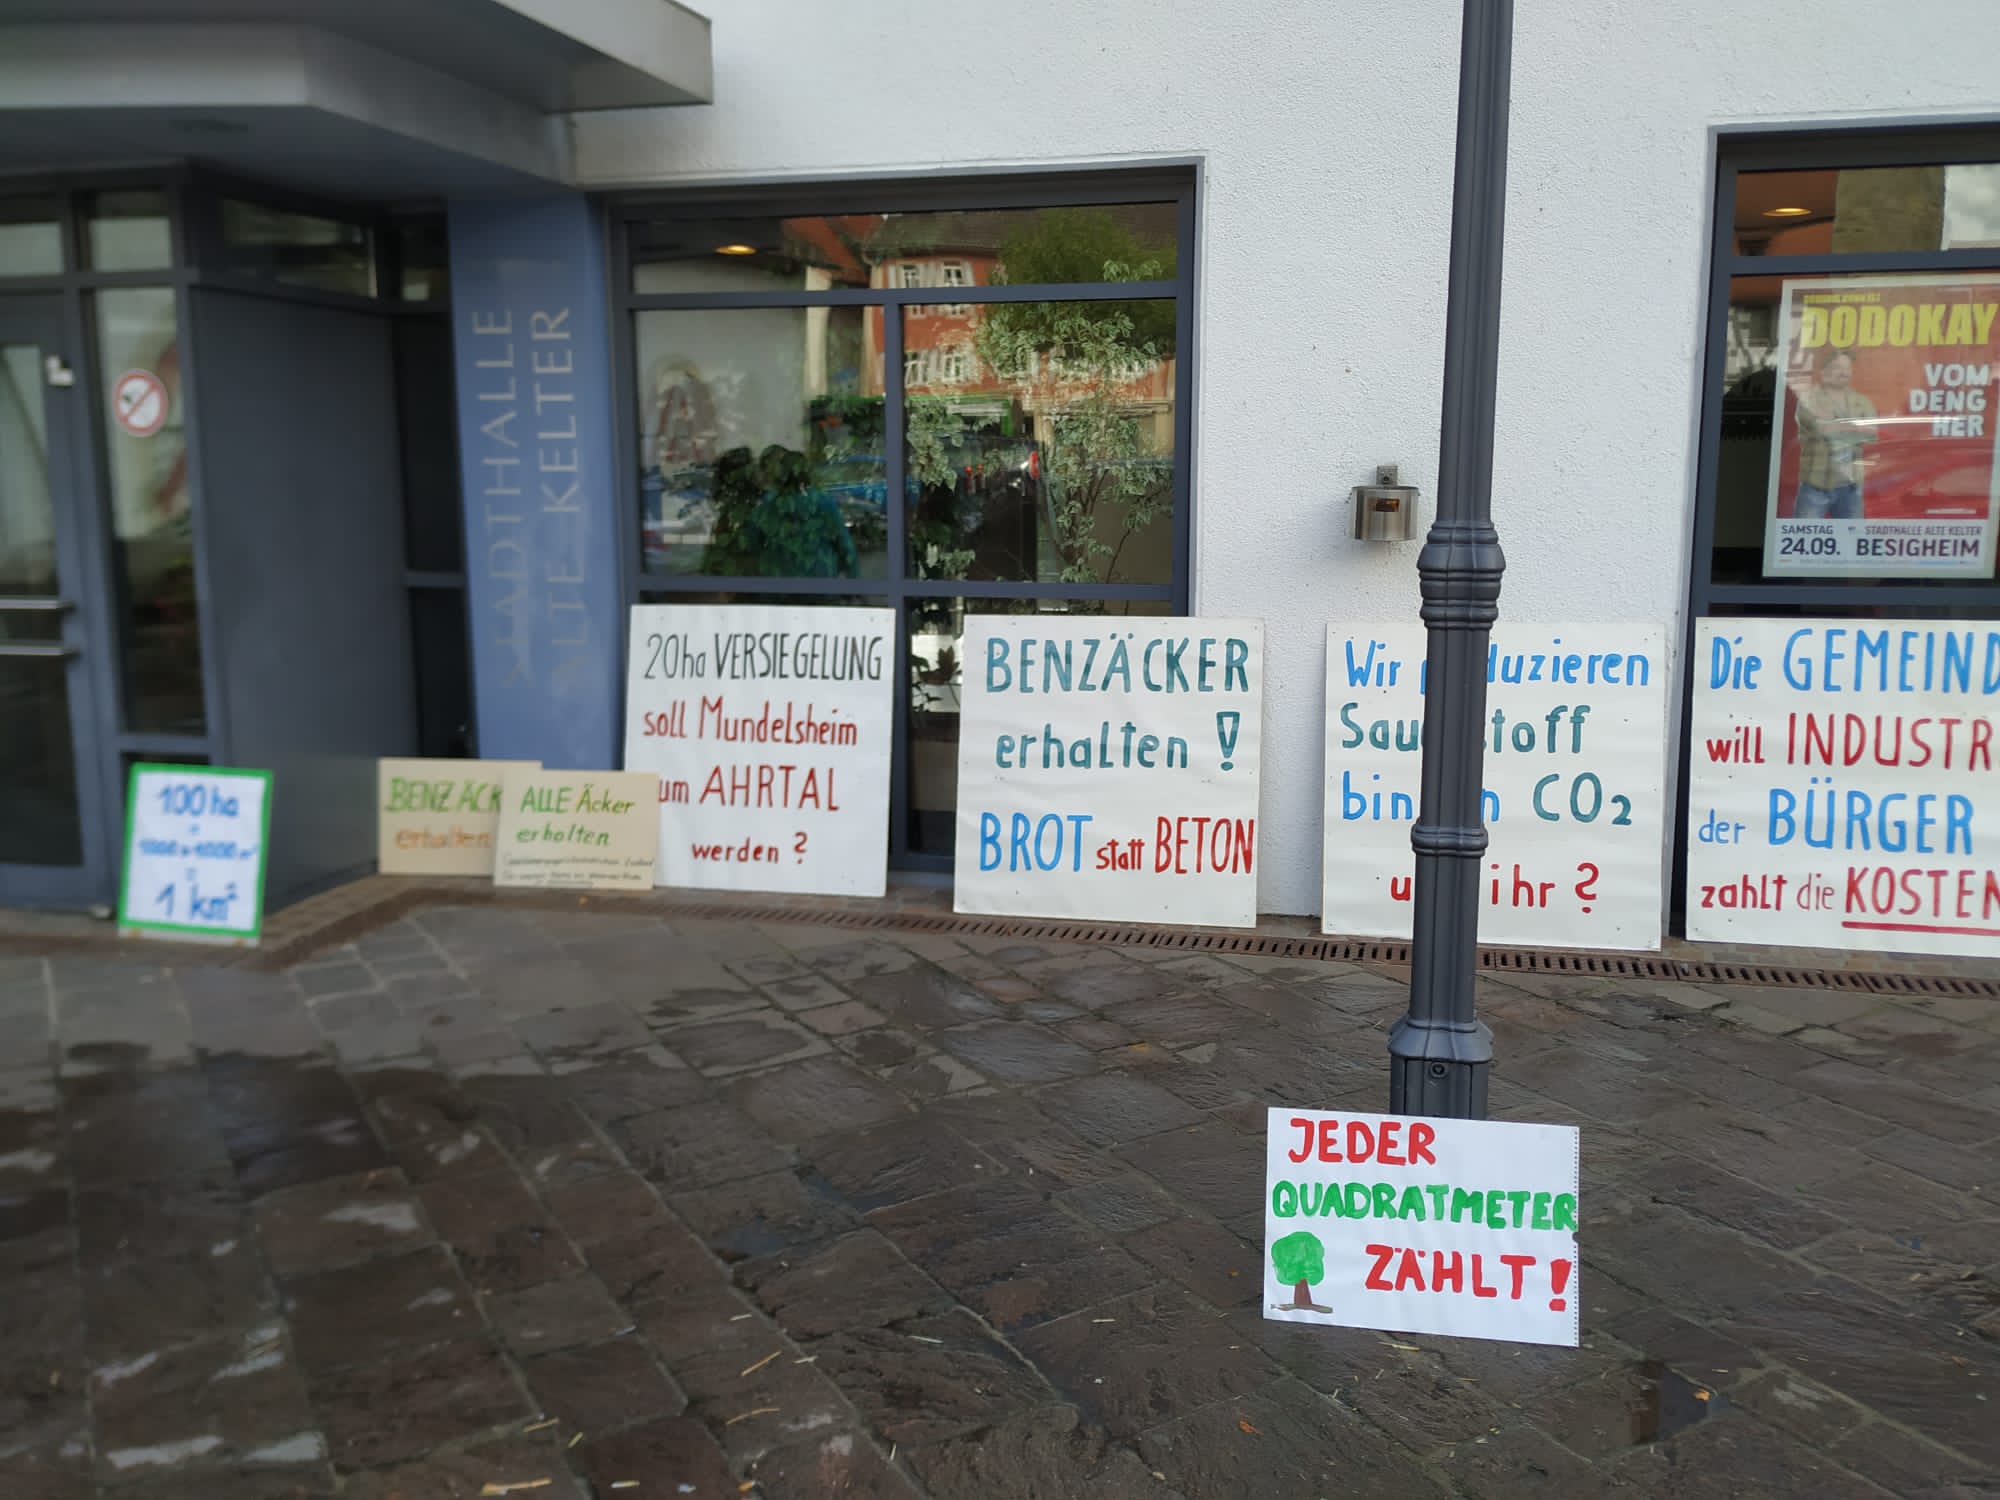 STADTHALLE
ALTE KELTER
100 ha
=
1000 x 1000 m²
=
1 km²
BENZÄCK
erhalten
ALLE Äcker
erhalten
20 ha VERSIEGELUNG
soll Mundelsheim
um AHRTAL
werden ?
BENZÄCKER
erhalten !
BROT statt BETON
Wir p duzieren
Sau toff
bin n CO2
u ihr ?
Die GEMEIND
will INDUSTR
der BÜRGER
zahlt die KOSTEN
DODOKAY
VOM
DENG
HER
SAMSTAG
24.09.
STADTHALLE ALTE KELTER
BESIGHEIM
JEDER
QUADRATMETER
ZÄHLT!